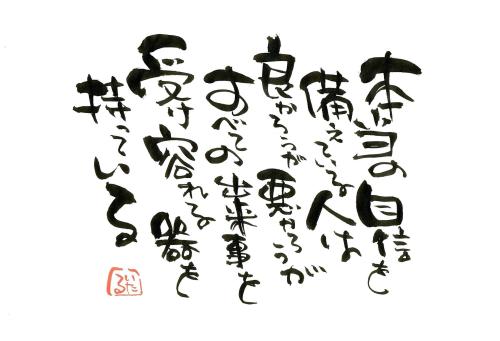 本当の自信を
備えている人は
良かろうが悪かろうが
すべての出来事を
受け容れる器を
持っている
いたる